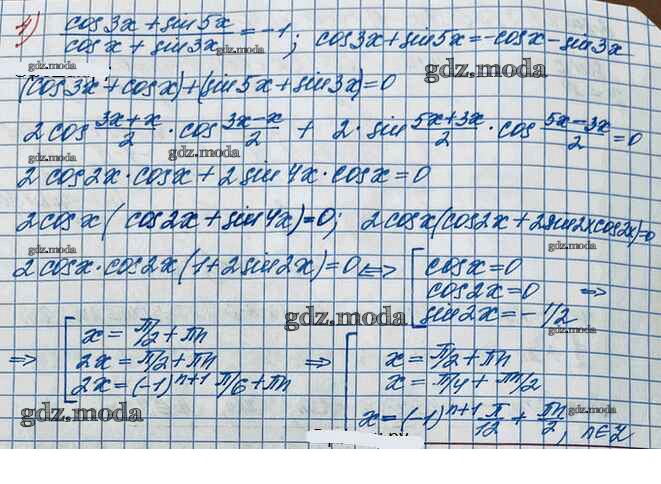 4) (cos3x + sin5x)/(cosx + sin3x) = -1; cos3x + sin5x = -cosx - sin3x
gdz.moda
gdz.moda
gdz.moda
(cos3x + cosx) + (sin5x + sin3x) = 0
2cos (3x+x)/2 · cos (3x-x)/2 + 2 · sin (5x+3x)/2 · cos (5x-3x)/2 = 0
gdz.moda
gdz.moda
2cos2x · cosx + 2sin4x · cosx = 0
gdz.moda
2cosx(cos2x + sin4x) = 0; 2cosx(cos2x + 2sin2xcos2x) = 0
gdz.moda
2cosx · cos2x(1 + 2sin2x) = 0 <=> [ cosx = 0
cos2x = 0 =>
sin2x = -1/2
gdz.moda
=> [ x = π/2 + πn
2x = π/2 + πn
2x = (-1)^{n+1} π/6 + πn
=> [ x = π/2 + πn
x = π/4 + πn/2
x = (-1)^{n+1} π/12 + πn/2, n∈Z
gdz.moda
gdz.moda